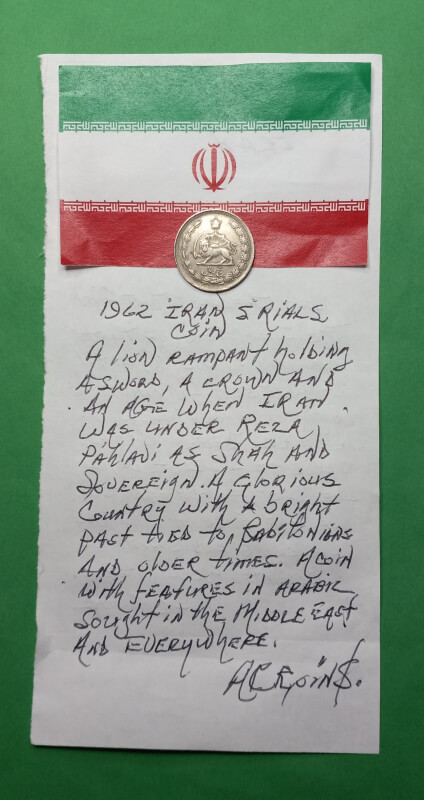 1962 IRAN 5 RIALS
COIN
A lion RAMPANT holding
A SWORD, A CROWN AND
AN AGE WHEN IRAN
WAS UNDER REZA
PAHLAVI AS SHAH AND
SOVEREIGN. A GLORIOUS
COUNTRY WITH A bRight
PAST TIED TO BABILONIANS
AND OLDER TIMES. A COIN
WITH FEATURES IN ARABIC
SOUGHT IN THE MIDDLE EAST
AND EVERYWHERE.